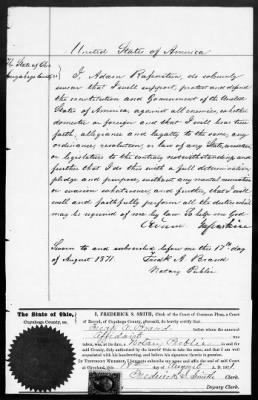 United States of America
The State of Ohio
Cuyahoga County ss
I, Adam Rapenstein, do solemnly
swear that I will support, protect and defend
the constitution and Government of the United
States of America, against all enemies, whether
domestic or foreign and that I will bear true
faith, allegiance and loyalty to the same, any
ordinance, resolution, or law of any State, convention
or legislature to the contrary notwithstanding, and
further that I do this with a full determination,
pledge and purpose, without any mental reservation
or evasion whatsoever, and further, that I will
well and faithfully perform all the duties which
may be required of me by law So help me God
Sworn to and subscribed before me this 17th day
of August 1871.
Fredk A. Brand
Notary Public
The State of Ohio,
Cuyahoga County, ss.
I, FREDERICK S. SMITH, Clerk of the Court of Common Pleas, a Court
of Record, of Cuyahoga County, aforesaid, do hereby certify that
Fredk A Brand before whom the annexed
Affidavit
taken, was, at the date, a Notary Public in and for
said County, duly authorized by the laws of Ohio to take the same, and that I am well
acquainted with his handwriting, and believe his signature thereto is genuine.
IN TESTIMONY WHEREOF, I hereunto subscribe my name and affix the seal of said Court
at Cleveland, this August
Frederick S. Smith Clerk.
Deputy Clerk.